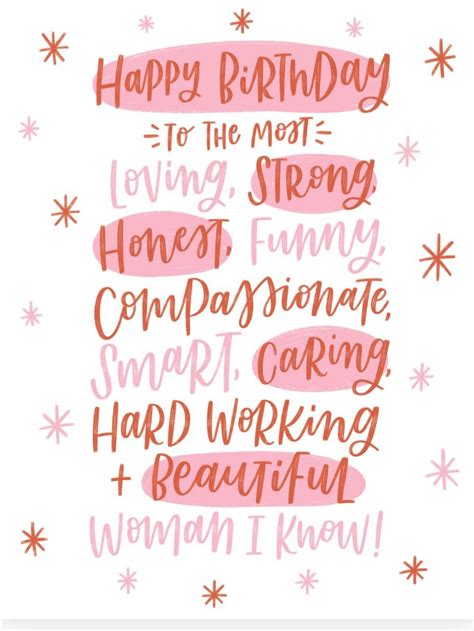 Happy Birthday
to the most
Loving, Strong,
Honest, Funny,
Compassionate,
Smart, Caring,
Hard Working
+ Beautiful
Woman I Know!